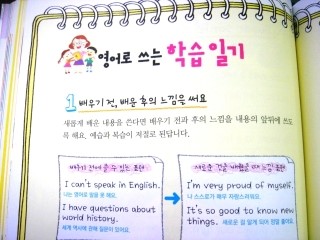 영어로 쓰는 학습 일기
1 배우기 전, 배운 후의 느낌을 써요
새롭게 배운 내용을 쓴다면 배우기 전과 후의 느낌을 내용의 앞뒤에 쓰도
록 해요. 예습과 복습이 저절로 된답니다.
배우기 전에 쓸 수 있는 표현
I can't speak in English.
나는 영어로 말을 못 해요.
I have questions about
world history.
세계 역사에 관해 질문이 있어요.
새로운 것을 배웠을 때 느낌 표현
I'm very proud of myself.
나 스스로가 매우 자랑스러워요.
It's so good to know new
things. 새로운 걸 알게 되어 정말 좋아요.